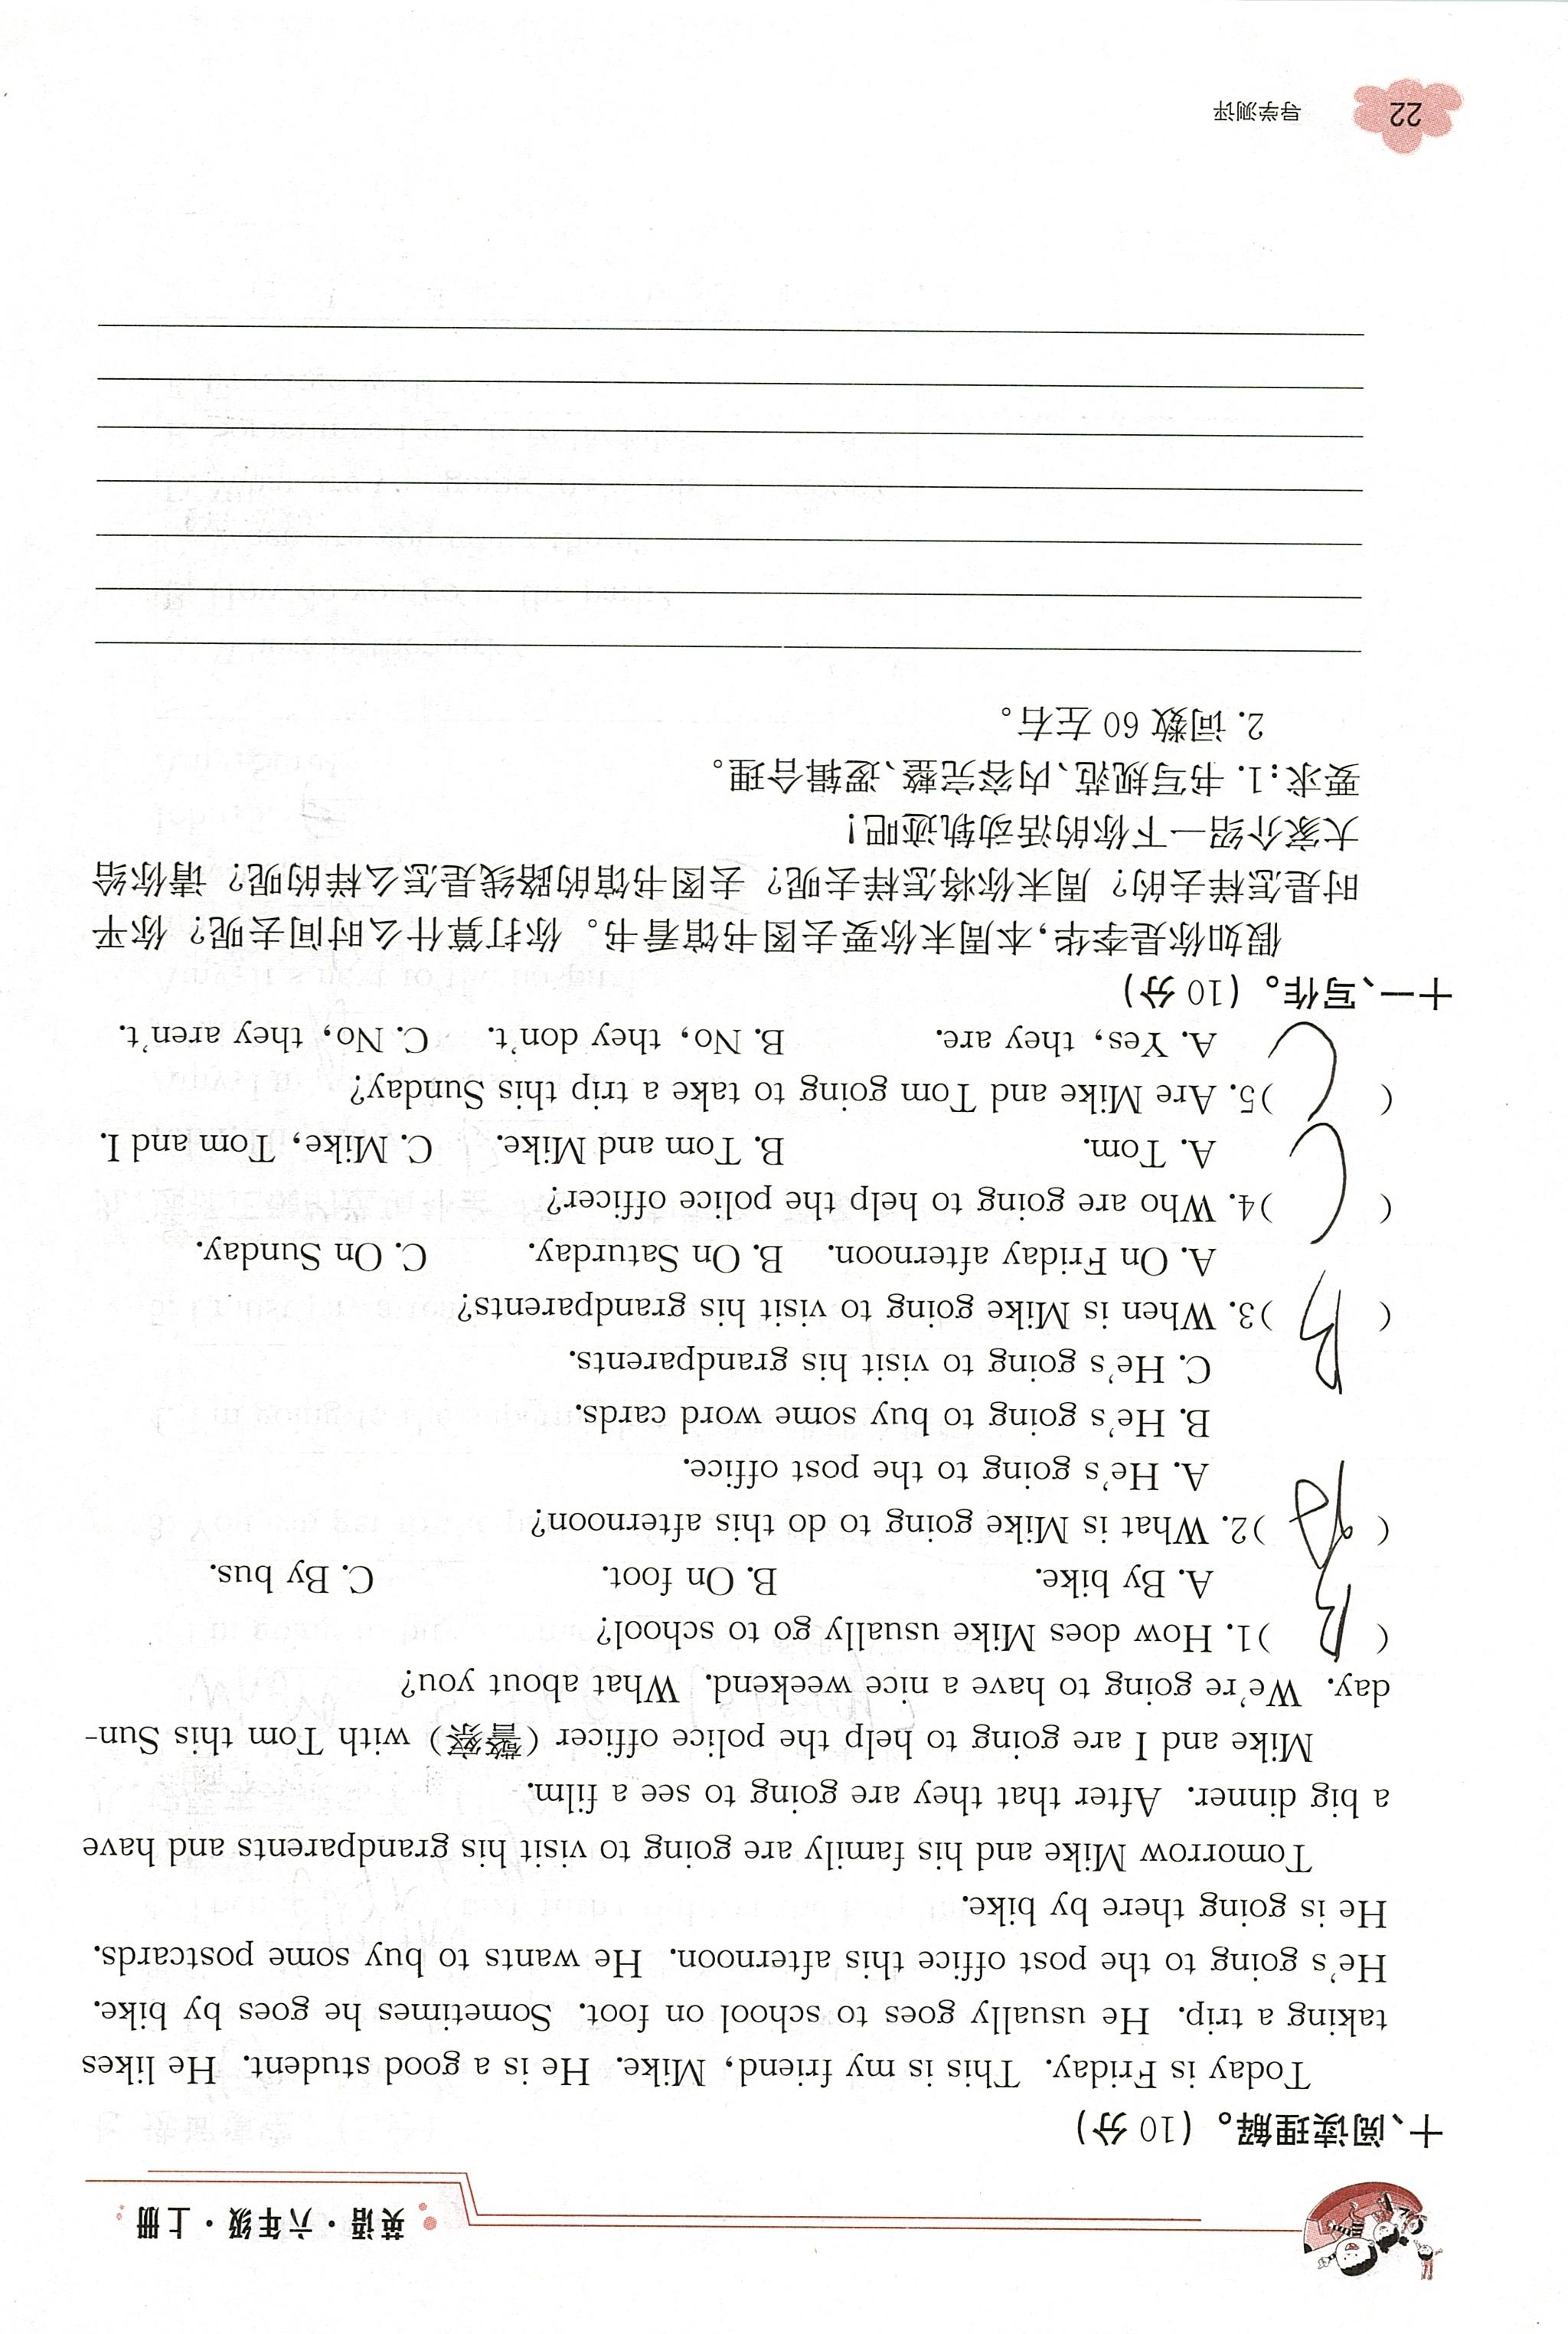 英语·六年级·上册
十、阅读理解。(10 分)
Today is Friday. This is my friend, Mike. He is a good student. He likes
taking a trip. He usually goes to school on foot. Sometimes he goes by bike.
He's going to the post office this afternoon. He wants to buy some postcards.
He is going there by bike.
Tomorrow Mike and his family are going to visit his grandparents and have
a big dinner. After that they are going to see a film.
Mike and I are going to help the police officer (警察) with Tom this Sun-
day. We're going to have a nice weekend. What about you?
( B )1. How does Mike usually go to school?
A. By bike. B. On foot. C. By bus.
( )2. What is Mike going to do this afternoon?
A. He's going to the post office.
B. He's going to buy some word cards.
C. He's going to visit his grandparents.
( B )3. When is Mike going to visit his grandparents?
A. On Friday afternoon. B. On Saturday. C. On Sunday.
( C )4. Who are going to help the police officer?
A. Tom. B. Tom and Mike. C. Mike, Tom and I.
( C )5. Are Mike and Tom going to take a trip this Sunday?
A. Yes, they are. B. No, they don't. C. No, they aren't.
十一、写作。(10 分)
假如你是李华,本周末你要去图书馆看书。你打算什么时间去呢? 你平
时是怎样去的? 周末你将怎样去呢? 去图书馆的路线是怎么样的呢? 请你给
大家介绍一下你的活动轨迹吧!
要求:1. 书写规范、内容完整、逻辑合理。
2. 词数 60 左右。
22
导学测评